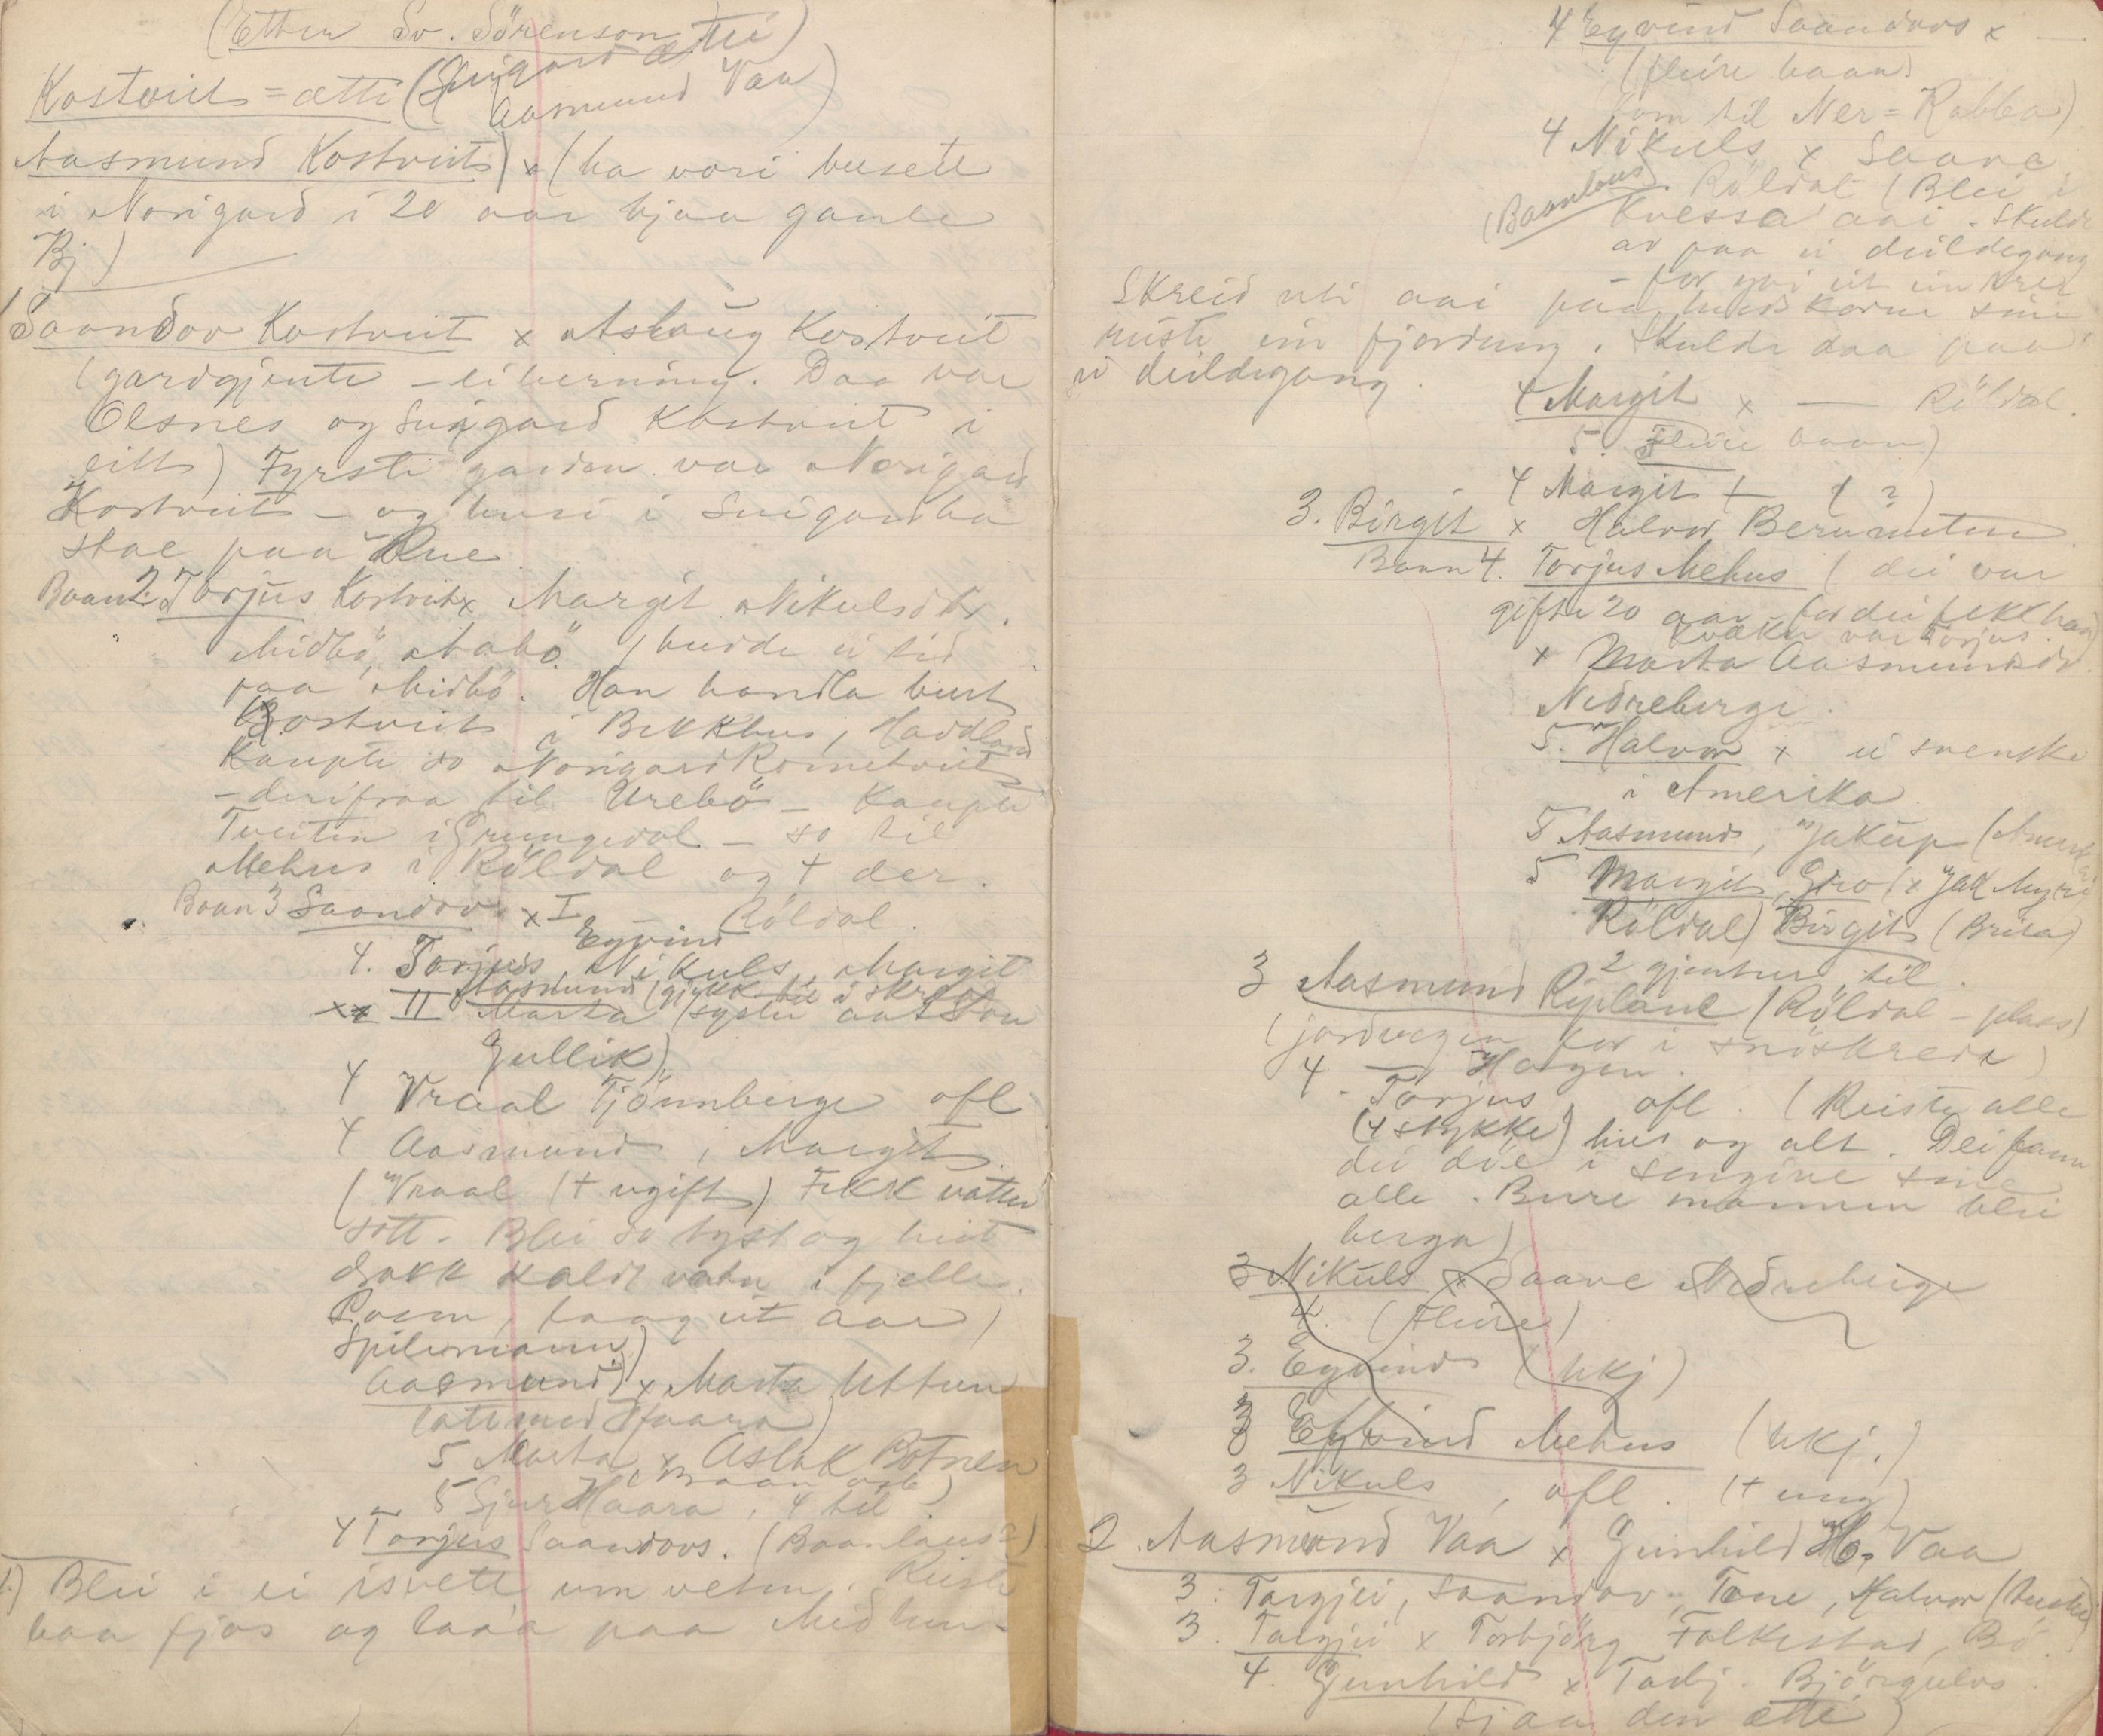 (Etter Sv. Sörenson
Kostveit=ætti (Suigard ætti
Aasmund Vaa)
Aasmund Kostveit) x (ha vori busett
i Norigard i 20 aar hjaa gamle
Bj)
1 Saandov Kostveit x Aslaug Kostveit
(gardgjente - Da var
Olsnes og Suigard Kostveit i
eitt) Fyrste garden var Norigard
Kostveit - og husi i Suigard ha
stae paa Rue
Baan 2 Torjus Kostveit x Margit Nikulsdtr.
Midbö, Nabö. (budde ei tid
paa Midbö. Han handla burt
Kostveit i Bekkhus, Haddland
Kaupte so Norigard Romtveit
- derifraa til Urebö - Kaupte
Tveiten i Grungedal - so til
Mehus i Röldal og + der.
Baan 3 Saandov x I — Röldal.
Eyvind
4. Torjus, Nikuls, Margit
Aasmund (gjekk til i skreid
xx II Marta (syster aat Ston
Gullik)
4 Vraal Tjönnberge ofl
4 Aasmund, Margit
(Vraal (+ ugift) Fekk vatter
sott. Blei so tyst og heit
drakk kaldt vatn i fjelle.
Roen, laag eit aar)
Spilemann)
Aasmund) x Marta Uttun
(att med Haara)
5 Marta x Aslak Botnen
(Baan ofl)
5 Sjur Haara, 4 til
4 Torjus Saandovs. (Baanlaus?)
1) Blei i ei isvett um veten. Reiste
baa fjos og laa'a paa Medhus-
4 Eyvind Saandovs x —
(fleire baan)
kom til Ner=Rabba)
4 Nikuls x Saave
(Baanlaus) Röldal (Blei i
Kvessa aai. Skulde
av paa ei deildegang
- for gai ut ein
Skreid uti aai paa hudskorne sine
miste ein fjordung. Skulde daa paa
ei deildegang.
4 Margit x — Röldal.
5. Fleire baan)
4 Margit + (?)
3. Birgit x Halvor Berunuten
Baan 4. Torjus Mehus (dei var
gifte 20 aar - for dei fekk han)
Kvæken var Torjus.
x Marta Aasmundsdr.
Nedreberge.
5. Halvor x ei svenske
i Amerika
5 Aasmund, Jakup (Amerika)
5 Margit, Gro (x Jak Myri
Röldal) Birgit (Brita)
2 gjentur til.
3 Aasmund Ripland (Röldal - plass)
(jordvegen for i snöskreda)
4 — Hagen.
4. Torjus, ofl. (Reiste alle
(4 stykke) hus og alt. Dei fann
dei död i sengine sine
alle. Bure mannen blei
berga)
3 Nikuls x Saave Nedreberge
4. (Fleire)
3. Eyvind (ukj)
3 Eyvind Mehus (ukj.)
3 Nikuls, ofl. (+ ung)
2. Aasmund Vaa x Gunhild H. Vaa
3. Targjei, Saandov, Tone, Halvor
3. Targjei x Torbjörg Folkestad, Bö.
4. Gunhild x Tarbj. Björgulvs.
(Sjaa den ætti)